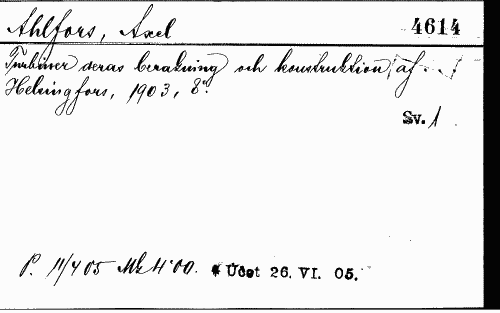 Ahlfors, Axel 4614
Turbiner deras beräkning och konstruktion, af
Helsingfors, 1903, 8°.
Sv. 1
P. 11/4 05 Mk 4'00. Účet 26. VI. 05.